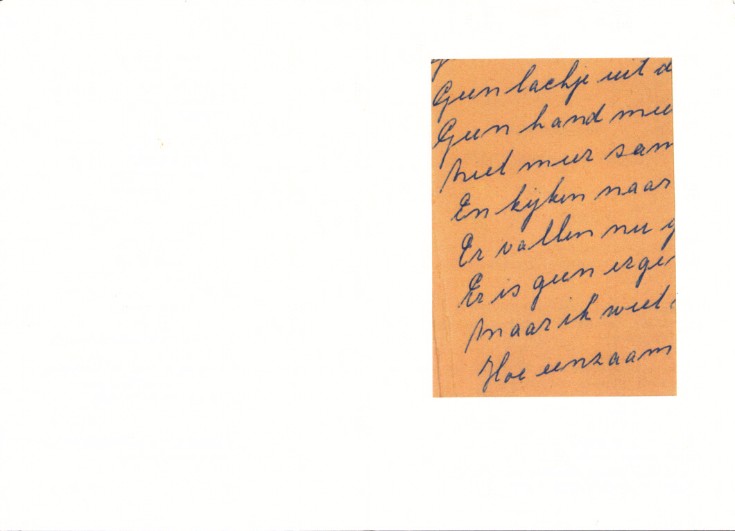 Geen lachje uit d
Geen hand mee
Niet meer sam
En kijken naar
Er vallen nu g
Er is geen erge
Maar ik weet
Hoe eenzaam